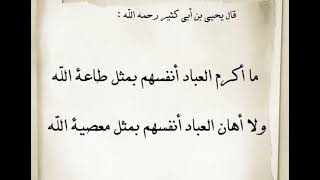 قال يحيى بن أبي كثير رحمه الله :
ما أكرم العباد أنفسهم بمثل طاعة الله
ولا أهان العباد أنفسهم بمثل معصية الله